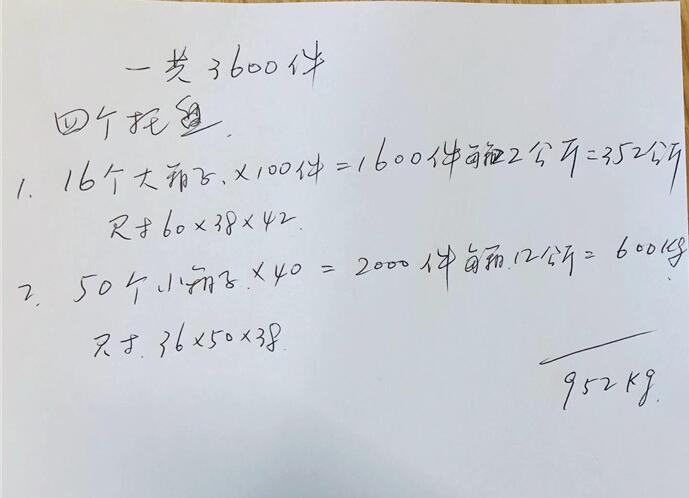 一共3600件
四个托盘.
1. 16个大箱子.×100件=1600件每箱22公斤=352公斤
尺寸60×38×42.
2. 50个小箱子.×40=2000件每箱.12公斤=600kg
尺寸.36×50×38.
952kg.